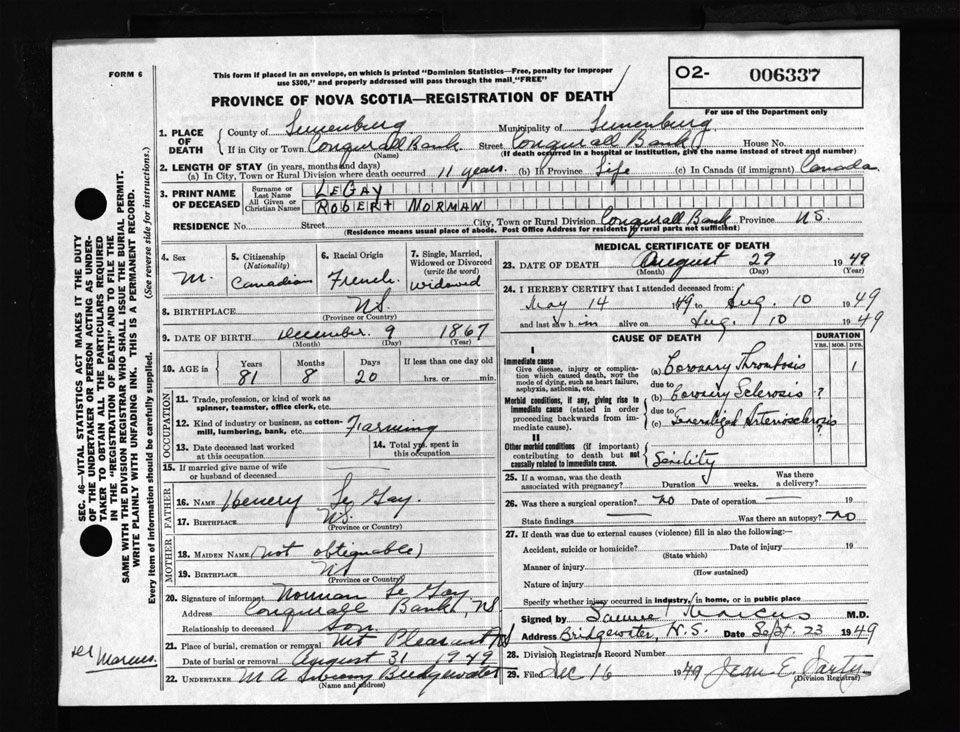 FORM 6
This form if placed in an envelope, on which is printed "Dominion Statistics—Free, penalty for improper
use $300," and properly addressed will pass through the mail "FREE"
O2- 006337
For use of the Department only
PROVINCE OF NOVA SCOTIA—REGISTRATION OF DEATH
1. PLACE OF DEATH
County of Lunenburg Municipality of Lunenburg
If in City or Town Conquerall Bank Street Conquerall Bank House No.
(Name) (If death occurred in a hospital or institution, give the name instead of street and number)
2. LENGTH OF STAY (in years, months and days)
(a) In City, Town or Rural Division where death occurred 11 years. (b) In Province Life (c) In Canada (if immigrant) Canada
3. PRINT NAME OF DECEASED
Surname or Last Name LEGAY
All Given or Christian Names ROBERT NORMAN
RESIDENCE No. Street City, Town or Rural Division Conquerall Bank Province N.S.
(Residence means usual place of abode. Post Office Address for residents of rural parts not sufficient)
4. Sex M.
5. Citizenship (Nationality) Canadian
6. Racial Origin French
7. Single, Married, Widowed or Divorced (write the word) Widowed
8. BIRTHPLACE N.S.
(Province or Country)
9. DATE OF BIRTH December 9 1867
(Month) (Day) (Year)
10. AGE in Years Months Days If less than one day old
81 8 20 hrs. or min.
OCCUPATION
11. Trade, profession, or kind of work as
spinner, teamster, office clerk, etc.
12. Kind of industry or business, as cotton-
mill, lumbering, bank, etc. Farming
13. Date deceased last worked
at this occupation
14. Total yrs. spent in
this occupation
15. If married give name of wife
or husband of deceased
FATHER
16. NAME Henery Le Gay.
17. BIRTHPLACE N.S.
(Province or Country)
MOTHER
18. MAIDEN NAME (not obtainable)
19. BIRTHPLACE N.S
(Province or Country)
20. Signature of informant Norman Le Gay
Address Conquerall Bank, N.S
Relationship to deceased Son
21. Place of burial, cremation or removal Mt Pleasant N.S
Date of burial or removal August 31 1949
22. UNDERTAKER M A Sweeny Bridgewater
(Name and address)
MEDICAL CERTIFICATE OF DEATH
23. DATE OF DEATH August 29 1949
(Month) (Day) (Year)
24. I HEREBY CERTIFY that I attended deceased from:
May 14 1949 to Aug. 10 1949
and last saw h im alive on Aug. 10 1949
CAUSE OF DEATH
DURATION
YRS. MOS. DYS.
I
Immediate cause
Give disease, injury or complica-
tion which caused death, NOT the
mode of dying, such as heart failure,
asphyxia, asthenia, etc.
(a) Coronary Thrombosis 1
due to
Morbid conditions, if any, giving rise to
immediate cause (stated in order
proceeding backwards from im-
mediate cause).
(b) Coronary Sclerosis ?
due to
(c) Generalized Arteriosclerosis ?
II
Other morbid conditions (if important)
contributing to death but not
causally related to immediate cause.
Senility
25. If a woman, was the death
associated with pregnancy? Duration weeks. Was there
a delivery?
26. Was there a surgical operation? no Date of operation 19
State findings Was there an autopsy? no
27. If death was due to external causes (violence) fill in also the following:
Accident, suicide or homicide? Date of injury 19
(State which)
Manner of injury
(How sustained)
Nature of injury
Specify whether injury occurred in industry, in home, or in public place
Signed by Marcus M.D.
Address Bridgewater, N.S. Date Sept. 23 1949
28. Division Registrar's Record Number
29. Filed Dec 16 1949 Jean E.
(Division Registrar)
SEC. 46—VITAL STATISTICS ACT MAKES IT THE DUTY
OF THE UNDERTAKER OR PERSON ACTING AS UNDER-
TAKER TO OBTAIN ALL THE PARTICULARS REQUIRED
IN THE "REGISTRATION OF DEATH" AND TO FILE THE
SAME WITH THE DIVISION REGISTRAR WHO SHALL ISSUE THE BURIAL PERMIT.
WRITE PLAINLY WITH UNFADING INK. THIS IS A PERMANENT RECORD.
Every item of information should be carefully supplied. (See reverse side for instructions.)
Marcus.